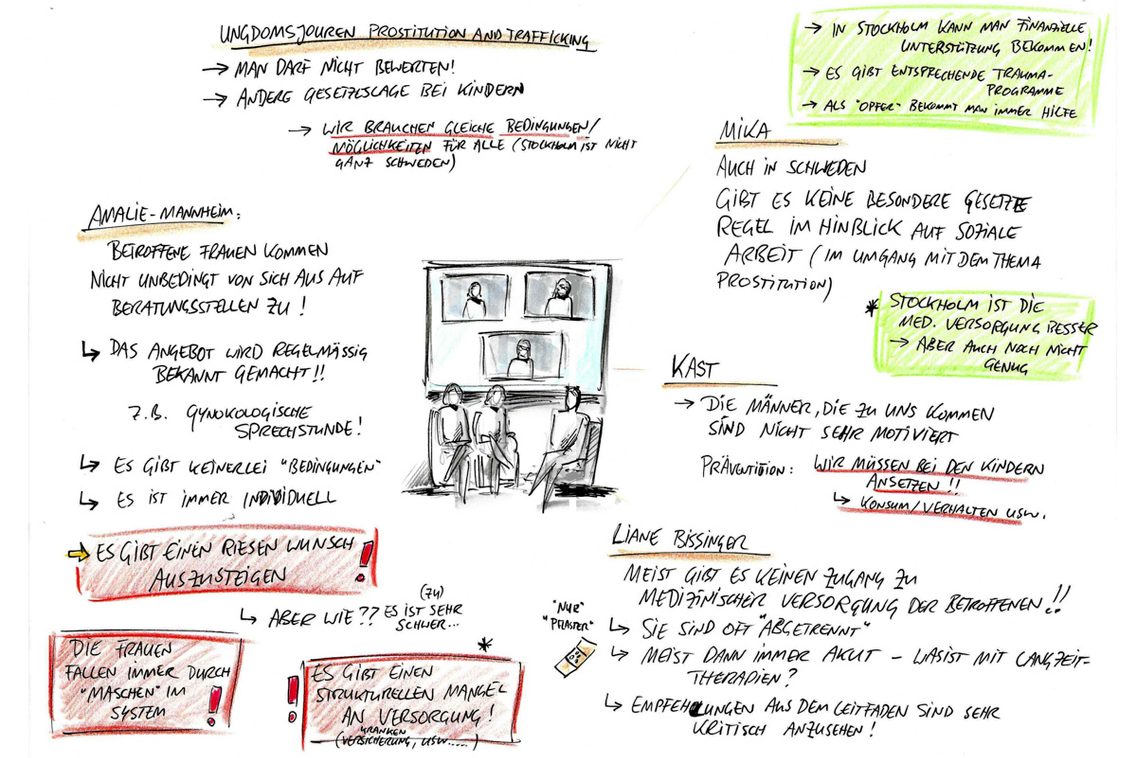 UNGDOMSJOUREN PROSTITUTION AND TRAFFICKING
→ MAN DARF NICHT BEWERTEN!
→ ANDERE GESETZESLAGE BEI KINDERN
→ WIR BRAUCHEN GLEICHE BEDINGUNGEN/
MÖGLICHKEITEN FÜR ALLE (STOCKHOLM IST NICHT
GANZ SCHWEDEN)
→ IN STOCKHOLM KANN MAN FINANZIELLE
UNTERSTÜTZUNG BEKOMMEN!
→ ES GIBT ENTSPRECHENDE TRAUMA-
PROGRAMME
→ ALS "OPFER" BEKOMMT MAN IMMER HILFE
MIKA
AUCH IN SCHWEDEN
GIBT ES KEINE BESONDERE GESETZTE
REGEL IM HINBLICK AUF SOZIALE
ARBEIT (IM UMGANG MIT DEM THEMA
PROSTITUTION)
* STOCKHOLM IST DIE
MED. VERSORGUNG BESSER
→ ABER AUCH NOCH NICHT
GENUG
AMALIE-MANNHEIM:
BETROFFENE FRAUEN KOMMEN
NICHT UNBEDINGT VON SICH AUS AUF
BERATUNGSSTELLEN ZU!
↳ DAS ANGEBOT WIRD REGELMÄSSIG
BEKANNT GEMACHT!!
Z.B. GYNOKOLOGISCHE
SPRECHSTUNDE!
↳ ES GIBT KEINERLEI "BEDINGUNGEN"
↳ ES IST IMMER INDIVIDUELL
→ ES GIBT EINEN RIESEN WUNSCH
AUSZUSTEIGEN !
↳ ABER WIE?? ES IST SEHR
(ZU)
SCHWER...
DIE FRAUEN
FALLEN IMMER DURCH
"MASCHEN" IM
SYSTEM !
*
! ES GIBT EINEN
STRUKTURELLEN MANGEL
AN VERSORGUNG!
KRANKEN
(VERSICHERUNG, USW.....)
KAST
→ DIE MÄNNER, DIE ZU UNS KOMMEN
SIND NICHT SEHR MOTIVIERT
PRÄVENTITION: WIR MÜSSEN BEI DEN KINDERN
ANSETZEN!!
↳ KONSUM/VERHALTEN USW.
LIANE BISSINGER
MEIST GIBT ES KEINEN ZUGANG ZU
MEDIZINISCHER VERSORGUNG DER BETROFFENEN!!
↳ SIE SIND OFT "ABGETRENNT"
"NUR"
"PFLASTER"
↳ MEIST DANN IMMER AKUT – WAS IST MIT LANGZEIT-
THERAPIEN?
↳ EMPFEHLUNGEN AUS DEM LEITFADEN SIND SEHR
KRITISCH ANZUSEHEN!